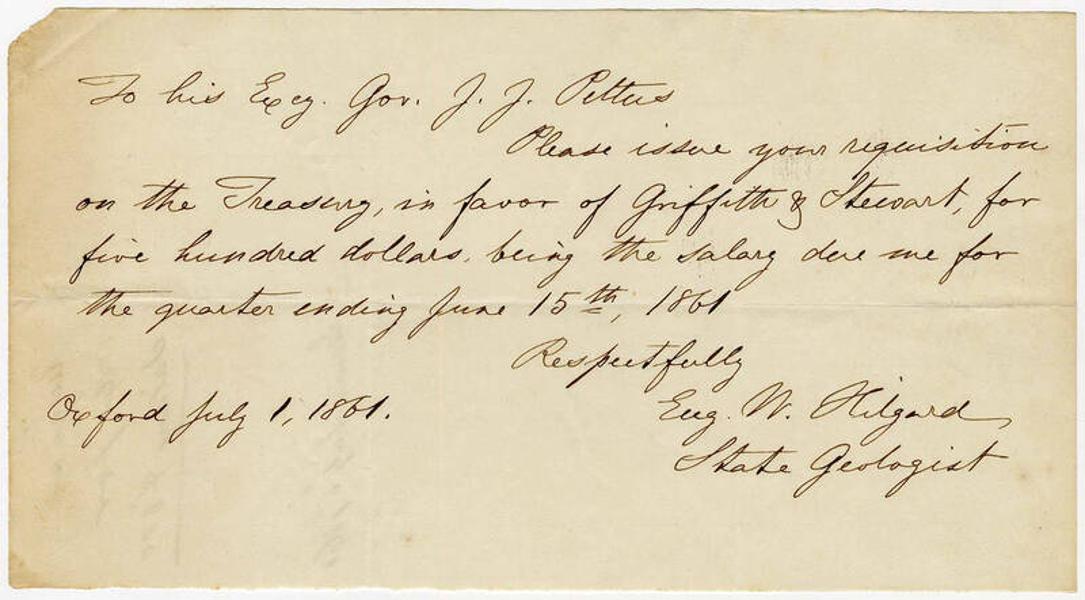 To his Excy. Gov. J. J. Pettus
Please issue your requisition
on the Treasury, in favor of Griffith & Stewart, for
five hundred dollars, being the salary due me for
the quarter ending June 15th, 1861
Respectfully
Oxford July 1, 1861.
Eug. W. Hilgard
State Geologist